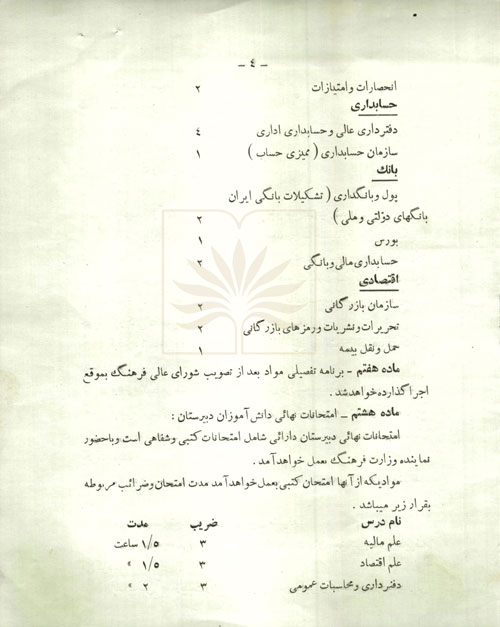 - ٤ -
انحصارات و امتیازات ۲
حسابداری
دفترداری عالی و حسابداری اداری ٤
سازمان حسابداری ( ممیزی حساب ) ۱
بانک
پول و بانگداری ( تشکیلات بانگی ایران
بانگهای دولتی و ملی ) ۲
بورس ۱
حسابداری مالی و بانگی ۲
اقتصادی
سازمان بازرگانی ۲
تحریرات و نشریات و رمزهای بازرگانی ۲
حمل و نقل بیمه ۱
ماده هفتم - برنامه تفصیلی مواد بعد از تصویب شورای عالی فرهنگ بموقع
اجرا گذارده خواهد شد .
ماده هشتم - امتحانات نهائی دانش آموزان دبیرستان :
امتحانات نهائی دبیرستان دارائی شامل امتحانات کتبی و شفاهی است و باحضور
نماینده وزارت فرهنگ بعمل خواهد آمد .
موادیکه از آنها امتحان کتبی بعمل خواهد آمد مدت امتحان و ضرائب مربوطه
بقرار زیر میباشد .
نام درس ضریب مدت
علم مالیه ۳ ۱/۵ ساعت
علم اقتصاد ۳ ۱/۵ »
دفترداری و محاسبات عمومی ۳ ۲ »